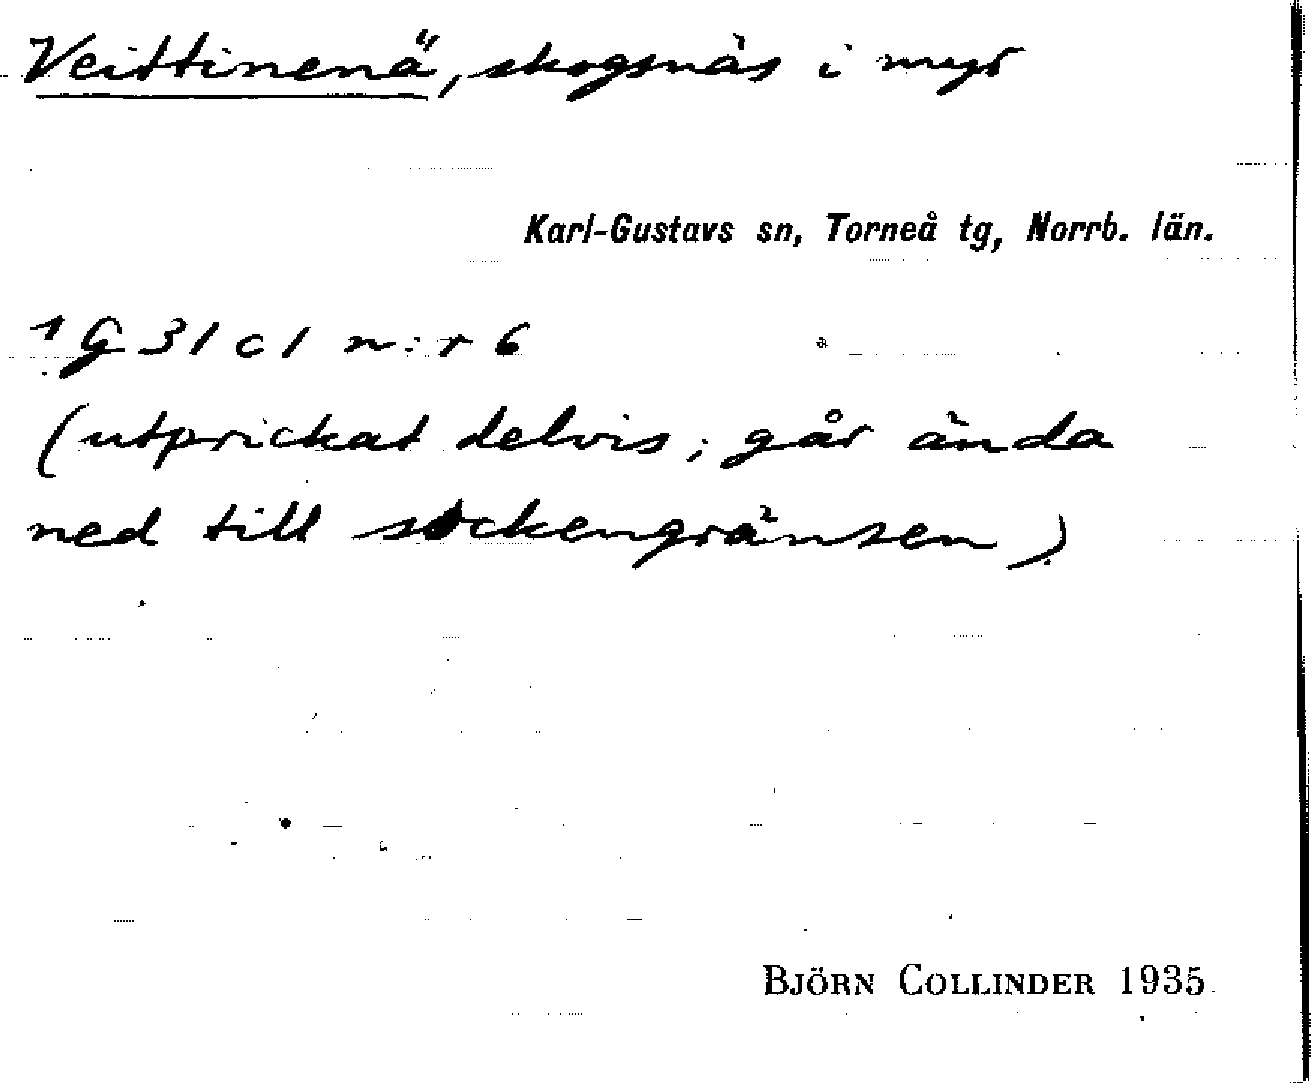 Veittinenä, skogsnäs i myr
Karl-Gustavs sn, Torneå tg, Norrb. län.
1 G 31 c 1 n:r 6
(utprickat delvis; går ända
ned till sockengränsen)
BJÖRN COLLINDER 1935